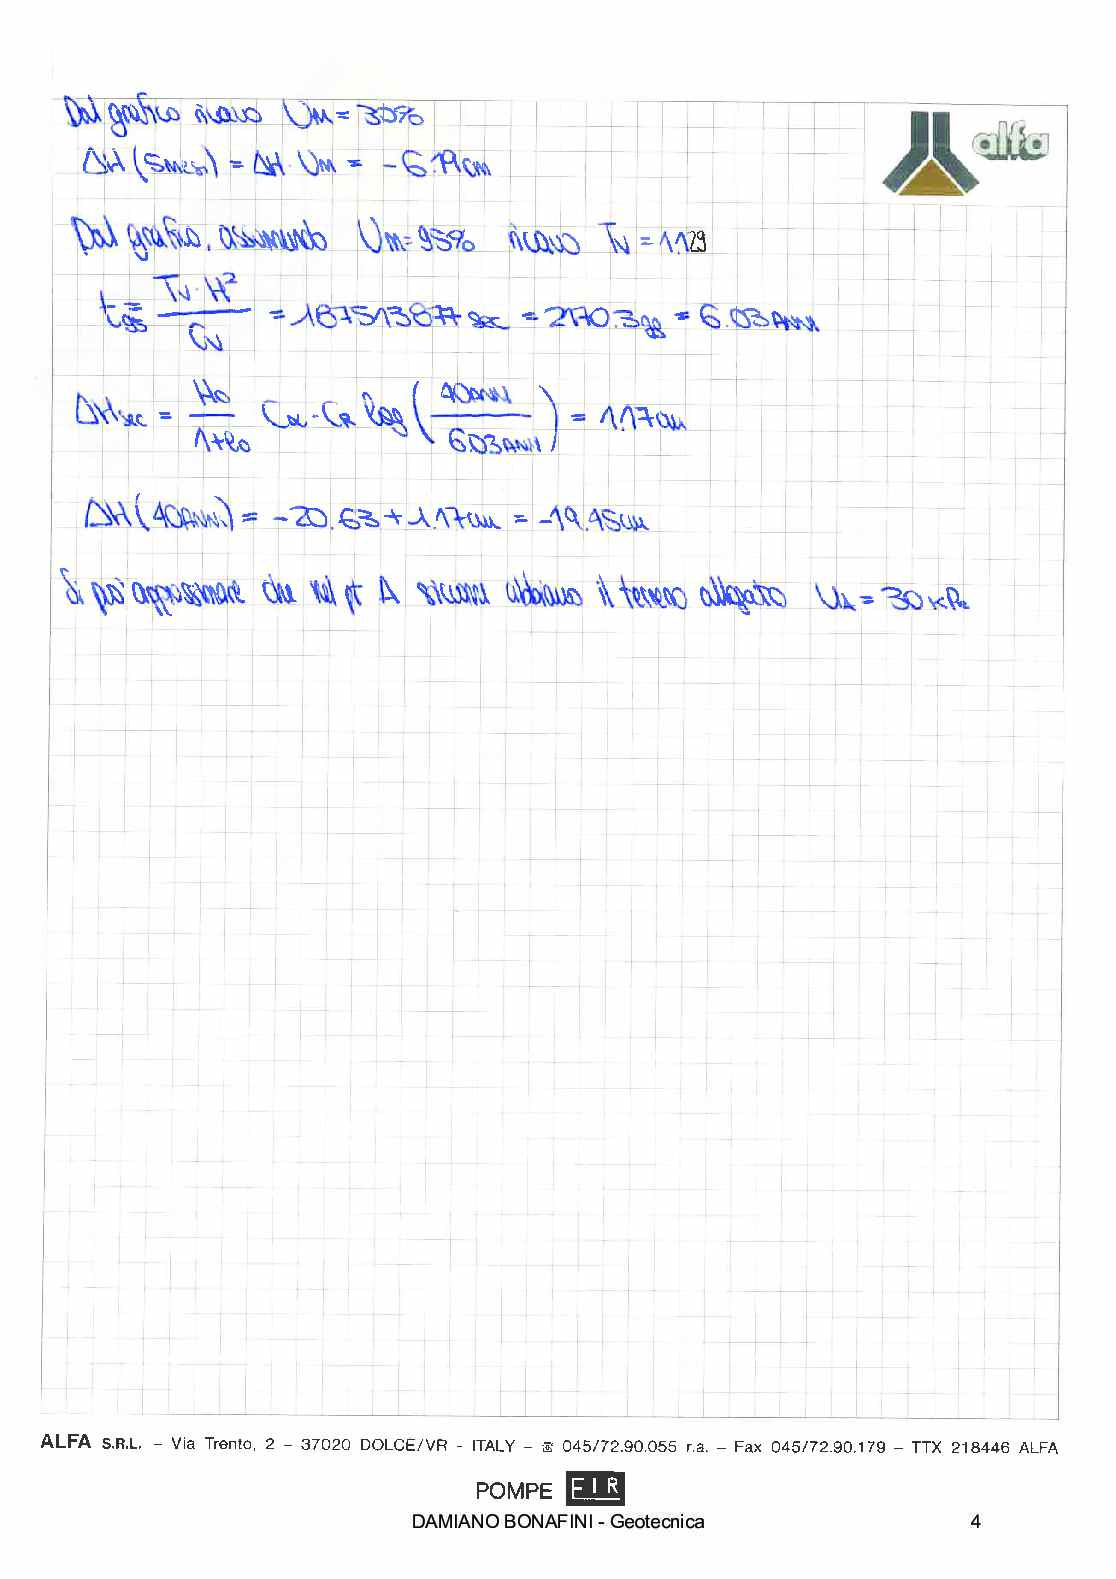 Dal grafico ricavo Um = 30%
alfa
ΔH (5 mesi) = ΔH · Um = -6.19 cm
Dal grafico, assumendo Um = 95% ricavo Tv = 1.129
t95 = Tv · H² / Cv = 187513877 sec = 2170.3 gg = 6.03 ANNI
ΔHsec = H0 / 1+e0 Cα · CR log ( 40ANNI / 6.03 ANNI ) = 1.17cm
ΔH (40ANNI) = -20.63 + 1.17cm = -19.45cm
Si può approssimare che nel pt A siccome abbiamo il terreno allagato UA = 30 KPa
ALFA S.R.L. – Via Trento, 2 – 37020 DOLCE/VR - ITALY – ☏ 045/72.90.055 r.a. – Fax 045/72.90.179 – TTX 218446 ALFA
POMPE FIR
DAMIANO BONAFINI - Geotecnica 4